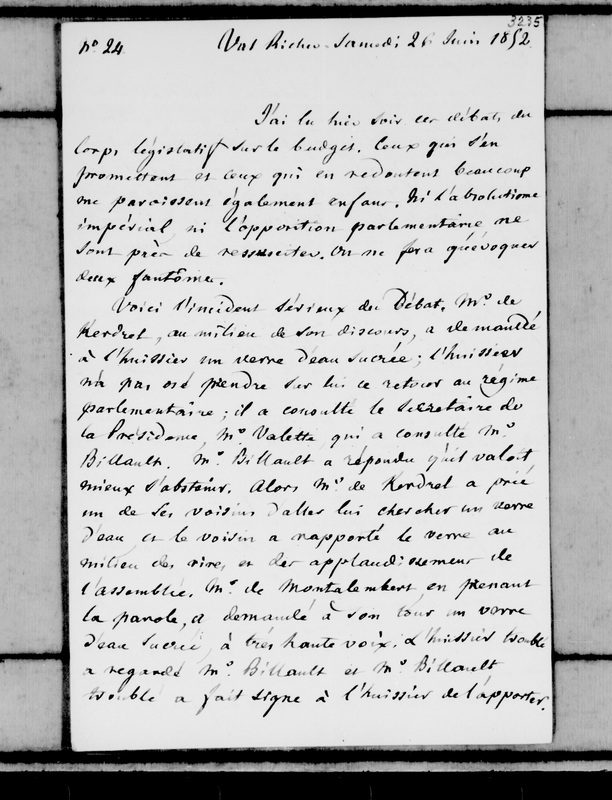 3235
N° 24 Val Richer. Samedi 26 Juin 1852.
J'ai lu hier soir ces débats du
Corps législatif sur le budget. Ceux qui s'en
promettent et ceux qui en redoutent beaucoup
me paroissent également enfans. Ni l'absolutisme
impérial, ni l'opposition parlementaire, ne
sont près de ressusciter. On ne fera qu'évoquer
deux fantômes.
Voici l'incident sérieux du Débat. Mr. de
Kerdrel, au milieu de son discours, a demandé
à l'huissier un verre d'eau sucrée; l'huissier
n'a pas osé prendre sur lui ce retour au régime
parlementaire; il a consulté le secrétaire de
la Présidence, Mr. Valette, qui a consulté Mr.
Billault. Mr. Billault a répondu qu'il valoit
mieux s'abstenir. Alors Mr. de Kerdrel a prié
un de ses voisins d'aller lui chercher un verre
d'eau, et le voisin a rapporté le verre au
milieu des rires et des applaudissemens de
l'assemblée. Mr. de Montalembert, en prenant
la parole, a demandé à son tour un verre
d'eau sucrée, à très haute voix. L'huissier troublé
a regardé Mr. Billault et Mr. Billault
troublé a fait signe à l'huissier de l'apporter.